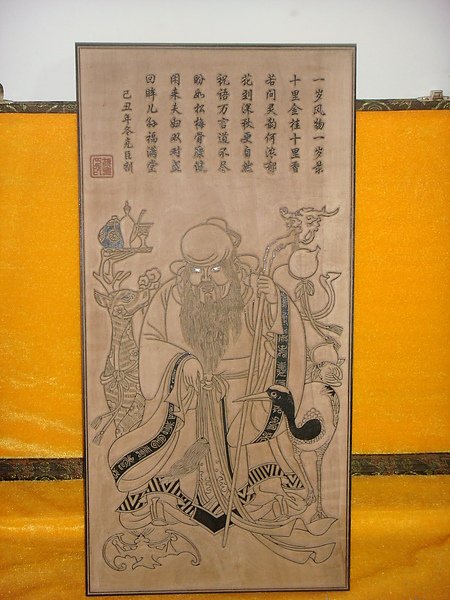 一岁风物一岁景
十里金桂十里香
若问灵韵何浓郁
花到深秋更自然
祝语万言道不尽
盼如松梅骨康健
闲来夫妇双对盏
回眸儿孙福满堂
己丑年冬克臣刻